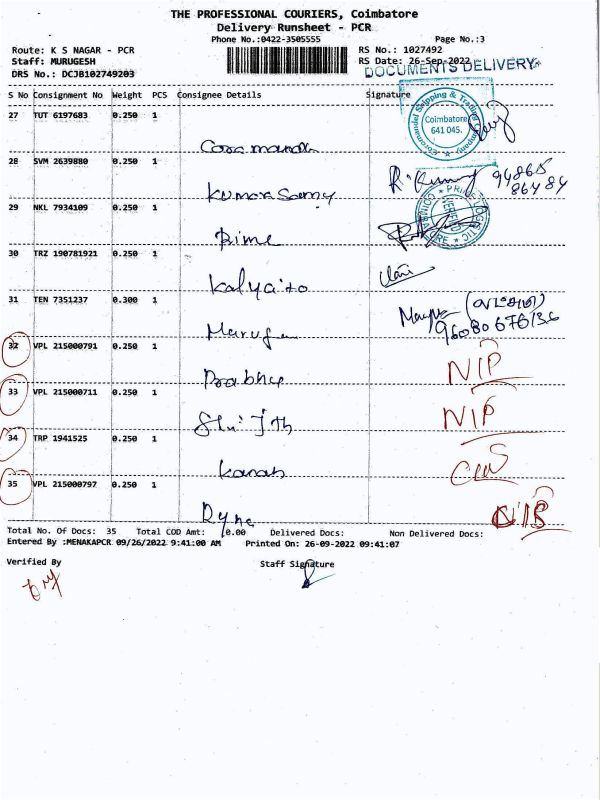 THE PROFESSIONAL COURIERS, Coimbatore
Delivery Runsheet - PCR
Phone No.:0422-3505555 Page No.:3
Route: K S NAGAR - PCR RS No.: 1027492
Staff: MURUGESH RS Date: 26-Sep-2022
DRS No.: DCJB102749203 DOCUMENTS DELIVERY
S No Consignment No Weight PCS Consignee Details Signature
27 TUT 6197683 0.250 1
Coromandel Shipping & Trading Company
Coimbatore
641 045.
28 SVM 2639880 0.250 1
R. Kumar 94865
86484
Kumarasamy
29 NKL 7934109 0.250 1
PRIME LOGISTIC
VERIFIED
COIMBATORE
Prime
30 TRZ 190781921 0.250 1
31 TEN 7351237 0.300 1
9608067636
32 VPL 215000791 0.250 1
Prabhu NIP
33 VPL 215000711 0.250 1
NIP
34 TRP 1941525 0.250 1
35 VPL 215000797 0.250 1
Total No. Of Docs: 35 Total COD Amt: 0.00 Delivered Docs: Non Delivered Docs:
Entered By :MENAKAPCR 09/26/2022 9:41:00 AM Printed On: 26-09-2022 09:41:07
Verified By Staff Signature